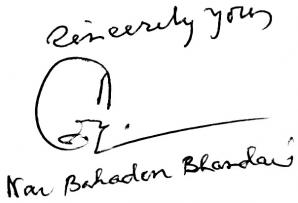 Sincerely yours
Nar Bahadur Bhandari